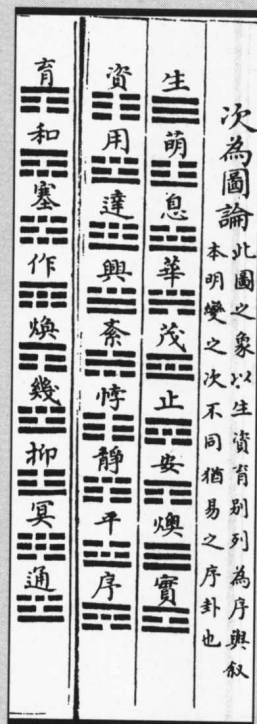 次為圖論
此圖之象以生資育別列為序與叙
本明變之次不同猶易之序卦也
生萌息華茂止安燠實
資用達興紊悖靜平序
育和塞作煥幾抑冥通